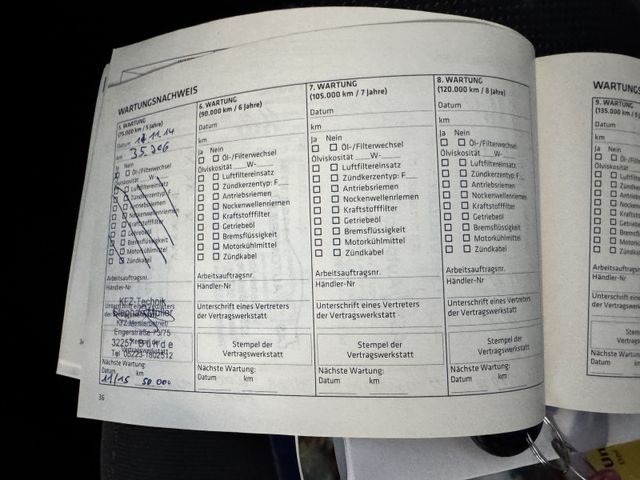 WARTUNGSNACHWEIS
5. WARTUNG
(75.000 km / 5 Jahre)
Datum
km
Ja Nein
Öl-/Filterwechsel
Ölviskosität W-
Luftfiltereinsatz
Zündkerzentyp: F
Antriebsriemen
Nockenwellenriemen
Kraftstofffilter
Getriebeöl
Bremsflüssigkeit
Motorkühlmittel
Zündkabel
Arbeitsauftragsnr.
Händler-Nr
KFZ-Technik
Engerstraße 73/75
32257 Bünde
Tel 05223-1802512
Nächste Wartung:
Datum km
11/15 50.000
6. WARTUNG
(90.000 km / 6 Jahre)
Datum
km
Ja Nein
Öl-/Filterwechsel
Ölviskosität W-
Luftfiltereinsatz
Zündkerzentyp: F
Antriebsriemen
Nockenwellenriemen
Kraftstofffilter
Getriebeöl
Bremsflüssigkeit
Motorkühlmittel
Zündkabel
Arbeitsauftragsnr.
Händler-Nr
Unterschrift eines Vertreters
der Vertragswerkstatt
Stempel der
Vertragswerkstatt
Nächste Wartung:
Datum km
7. WARTUNG
(105.000 km / 7 Jahre)
Datum
km
Ja Nein
Öl-/Filterwechsel
Ölviskosität W-
Luftfiltereinsatz
Zündkerzentyp: F
Antriebsriemen
Nockenwellenriemen
Kraftstofffilter
Getriebeöl
Bremsflüssigkeit
Motorkühlmittel
Zündkabel
Arbeitsauftragsnr.
Händler-Nr
Unterschrift eines Vertreters
der Vertragswerkstatt
Stempel der
Vertragswerkstatt
Nächste Wartung:
Datum km
8. WARTUNG
(120.000 km / 8 Jahre)
Datum
km
Ja Nein
Öl-/Filterwechsel
Ölviskosität W-
Luftfiltereinsatz
Zündkerzentyp: F
Antriebsriemen
Nockenwellenriemen
Kraftstofffilter
Getriebeöl
Bremsflüssigkeit
Motorkühlmittel
Zündkabel
Arbeitsauftragsnr.
Händler-Nr
Unterschrift eines Vertreters
der Vertragswerkstatt
Stempel der
Vertragswerkstatt
Nächste Wartung:
Datum km
36
9. WARTUNG
(135.000 km / 9
Datum
km
Ja Nein